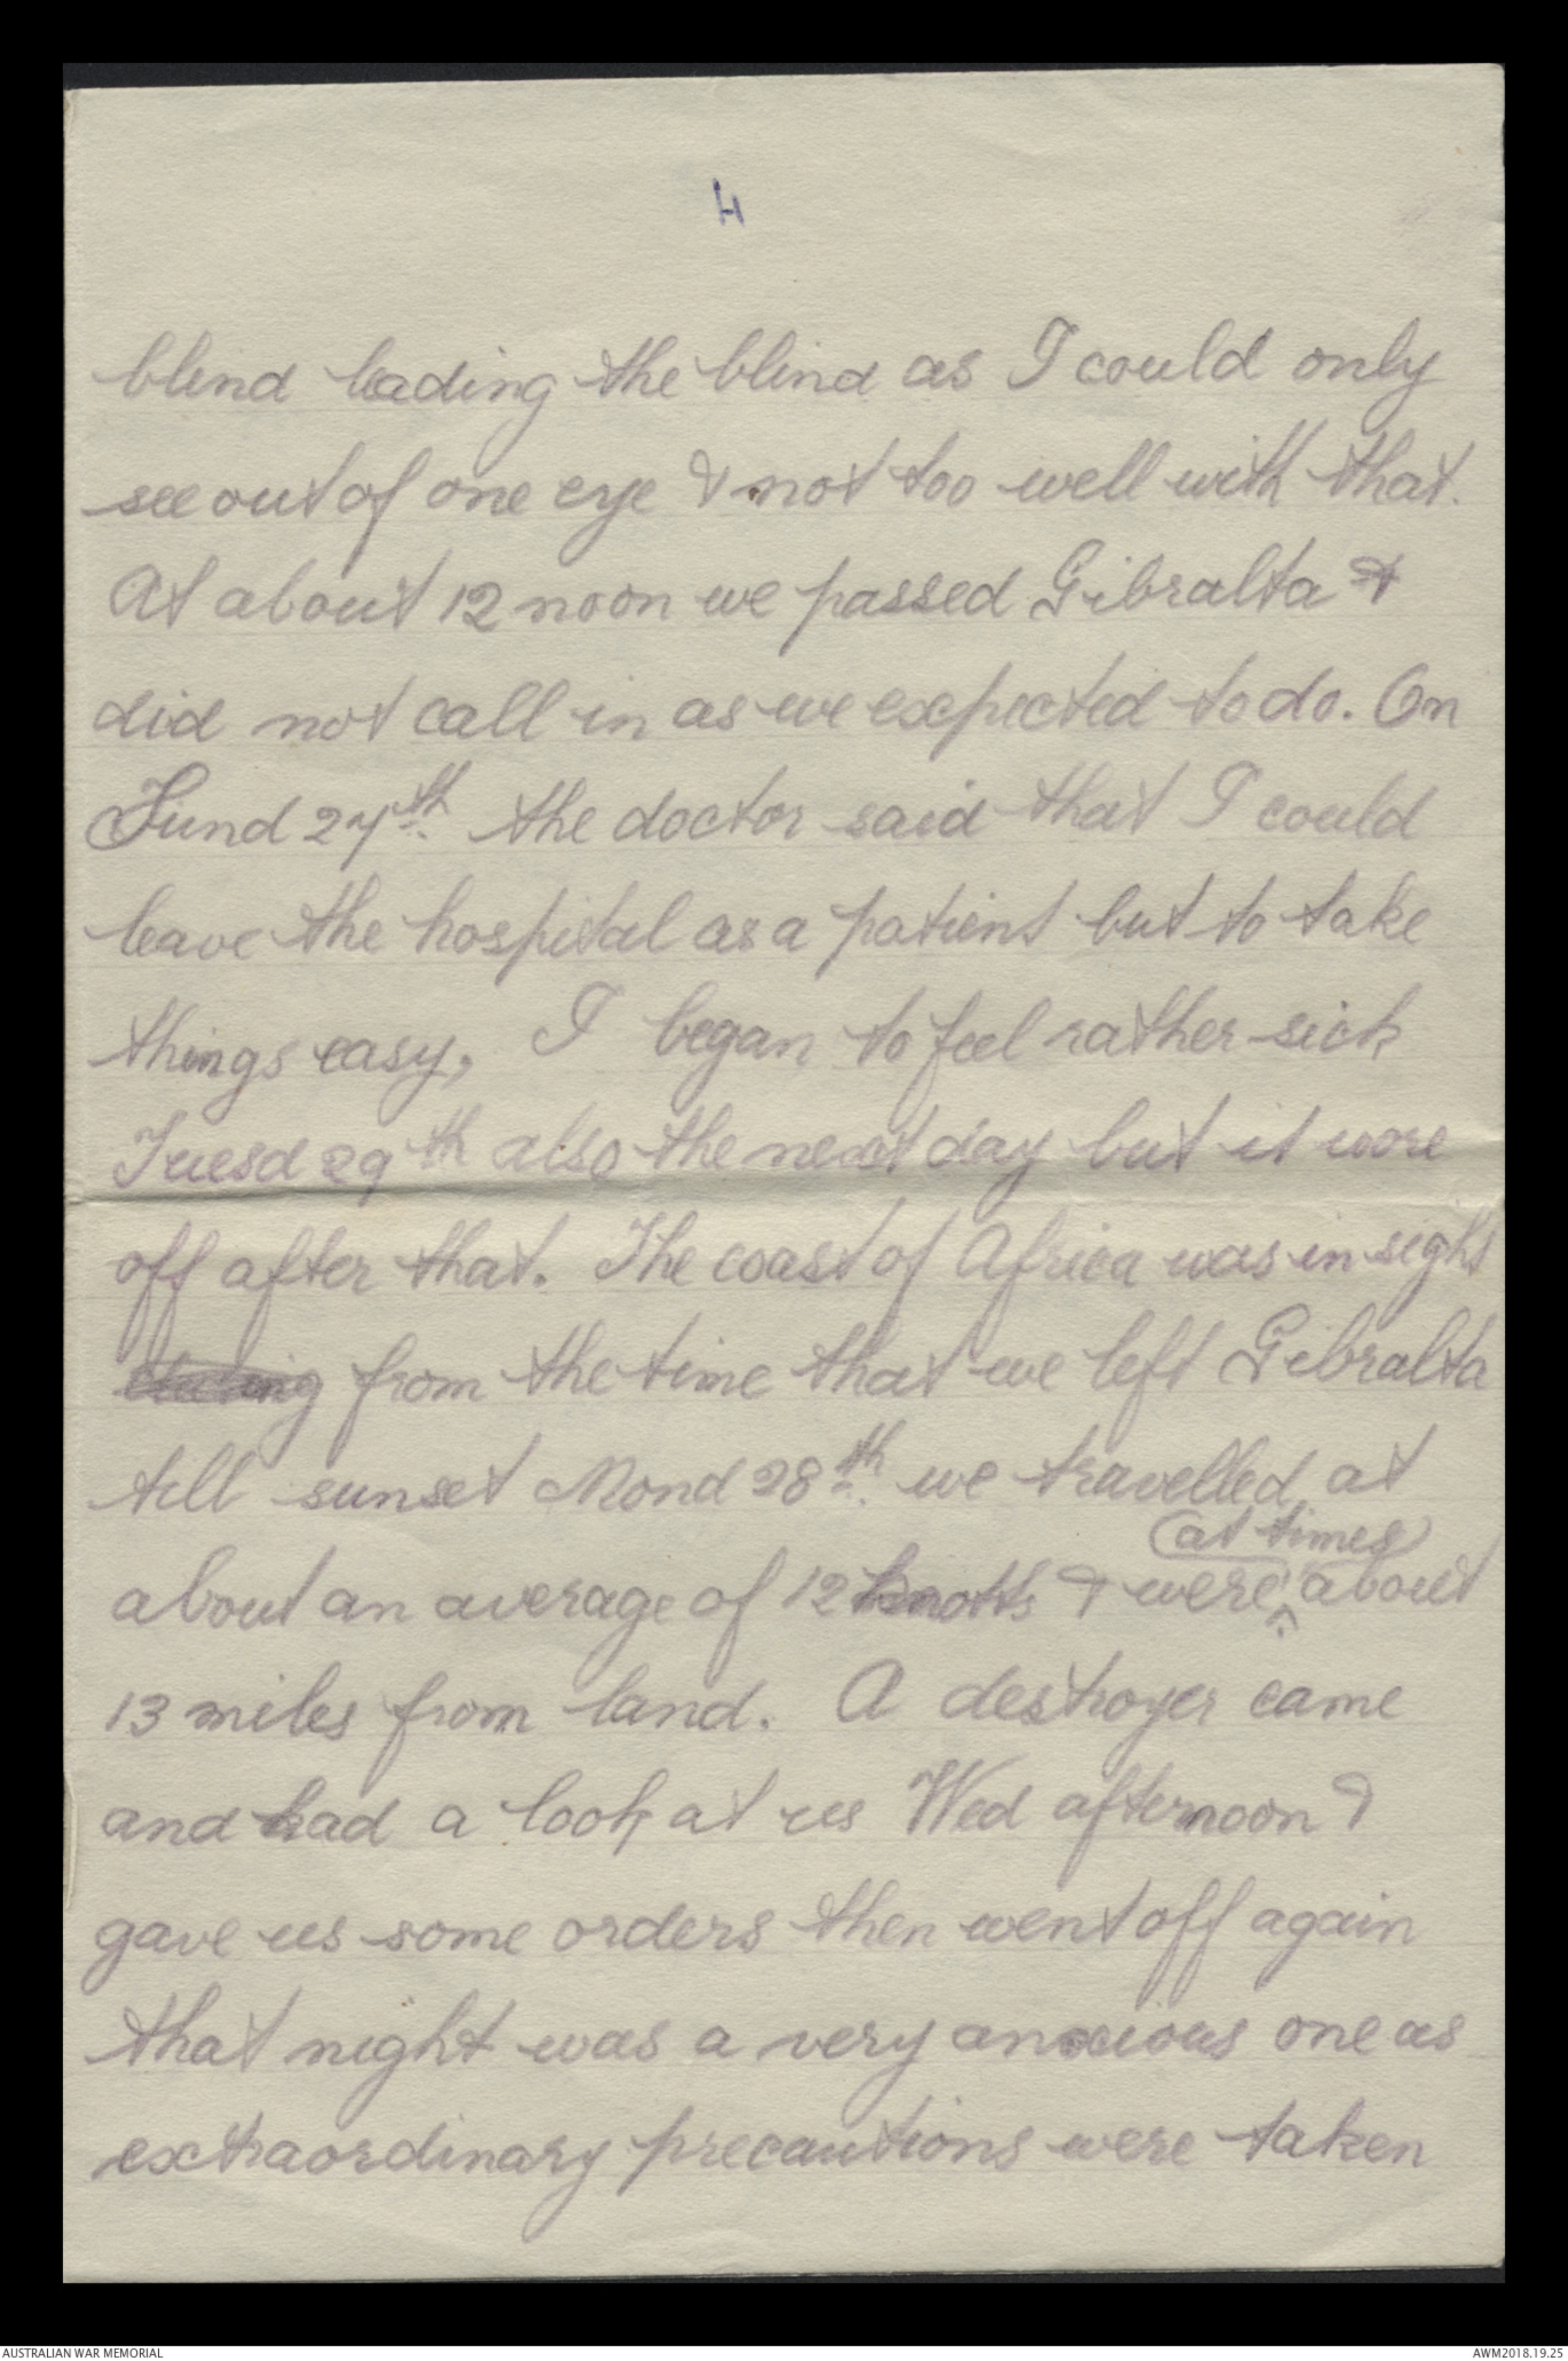 4
blind leading the blind as I could only
see out of one eye & not too well with that.
At about 12 noon we passed Gibralta &
did not call in as we expected to do. On
Sund 27th the doctor said that I could
leave the hospital as a patient but to take
things easy, I began to feel rather sick
Tuesd 29th also the next day but it wore
off after that. The coast of Africa was in sight
from the time that we left Gibralta
till sunset Mond 28th. we travelled at
(at times)
about an average of 12 knotts & were about
13 miles from land. A destroyer came
and had a look at us Wed afternoon &
gave us some orders then went off again
that night was a very anxious one as
extraordinary precautions were taken
AUSTRALIAN WAR MEMORIAL
AWM2018.19.25